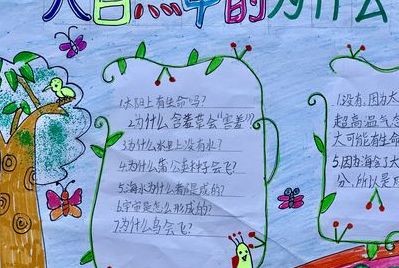 大自然中的为什么
1.太阳上有生命吗?
2.为什么含羞草会“害羞”?
3.为什么水星上没有水?
4.为什么蒲公英种子会飞?
5.海水为什么都是咸的?
6.宇宙是怎么形成的?
7.为什么鸟会飞?
1.没有,因为太
超高温气态
大可能有生命
5.因为海含了大
分,所以是咸